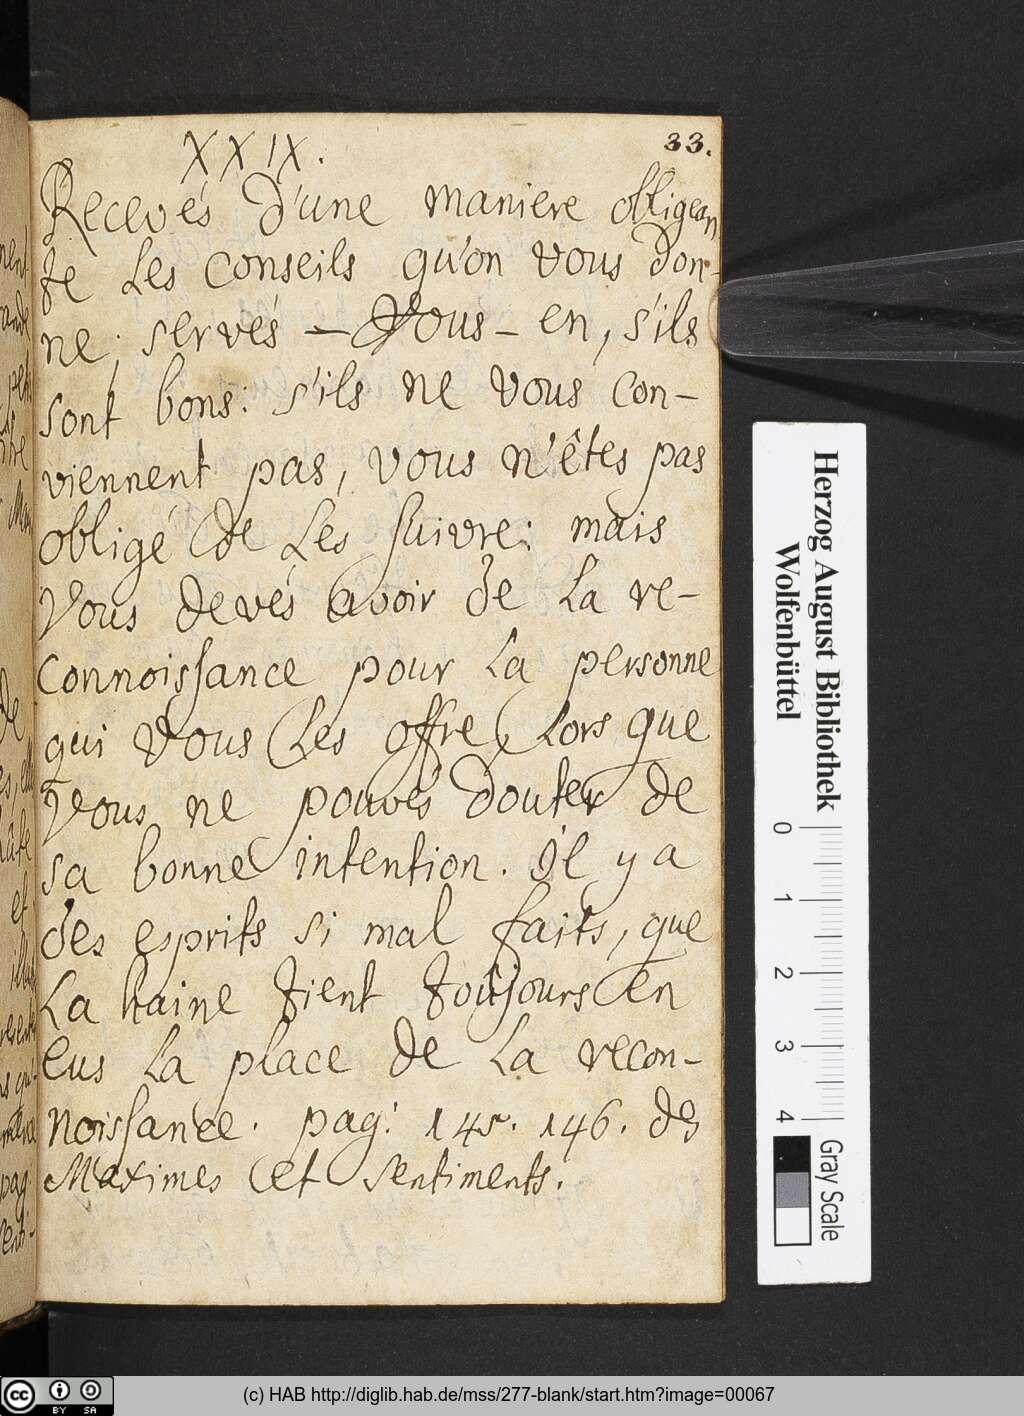 XXIX.
33.
Recevés d'une maniere obligean
te Les conseils qu'on vous don-
ne; servés-vous-en, s'ils
sont bons: s'ils ne vous con-
viennent pas, vous n'êtes pas
obligé de Les suivre: mais
vous devés avoir de La re-
connoissance pour La personne
qui vous Les offre, Lors que
vous ne pouvés douter de
sa bonne intention. il y a
des esprits si mal faits, que
La haine tient toûjours en
eus La place de La recon-
noissance. pag: 145. 146. des
Maximes et Sentiments.
Herzog August Bibliothek
Wolfenbüttel
0 1 2 3 4
Gray Scale
(c) HAB http://diglib.hab.de/mss/277-blank/start.htm?image=00067
cc BY SA